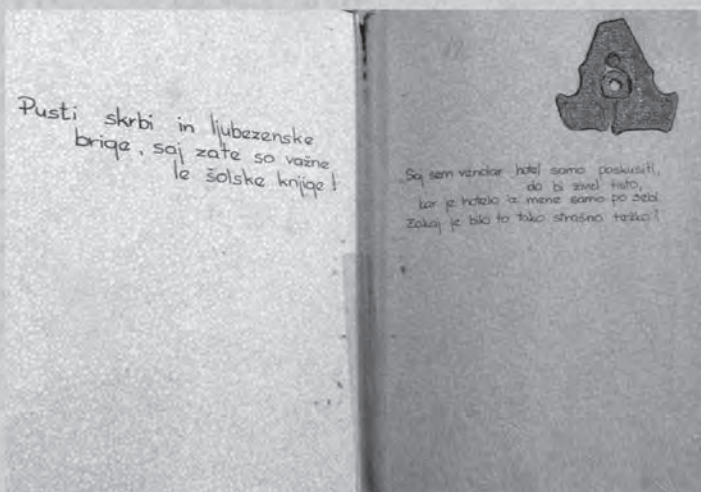 Pusti skrbi in ljubezenske
brige, saj zate so važne
le šolske knjige!
Saj sem vendar hotel samo poskusiti,
da bi živel tisto,
kar je hotelo iz mene samo po sebi.
Zakaj je bilo to tako strašno težko?